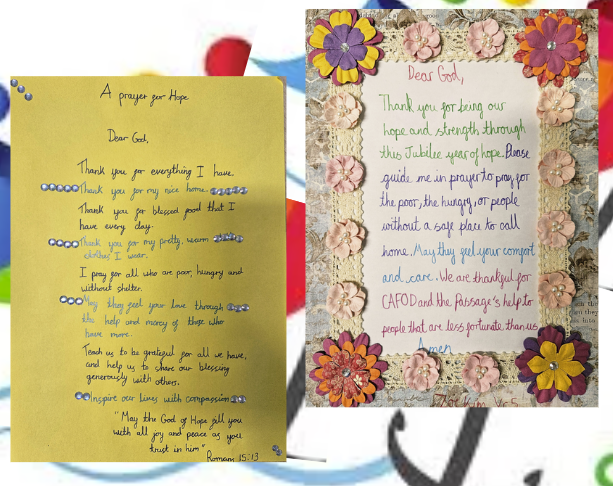 A prayer for Hope
Dear God,
Thank you for everything I have.
Thank you for my nice home.
Thank you for blessed food that I
have every day.
Thank you for my pretty, warm
clothes I wear.
I pray for all who are poor, hungry and
without shelter.
May they feel your love through
the help and mercy of those who
have more.
Teach us to be grateful for all we have,
and help us to share our blessing
generously with others.
Inspire our lives with compassion
"May the God of Hope fill you
with all joy and peace as you
trust in him"
Romans 15:13
Dear God,
Thank you for being our
hope and strength through
this Jubilee year of hope. Please
guide me in prayer to pray for
the poor, the hungry, or people
without a safe place to call
home. May they feel your comfort
and care. We are thankful for
CAFOD and the Passage's help to
people that are less fortunate than us
Amen